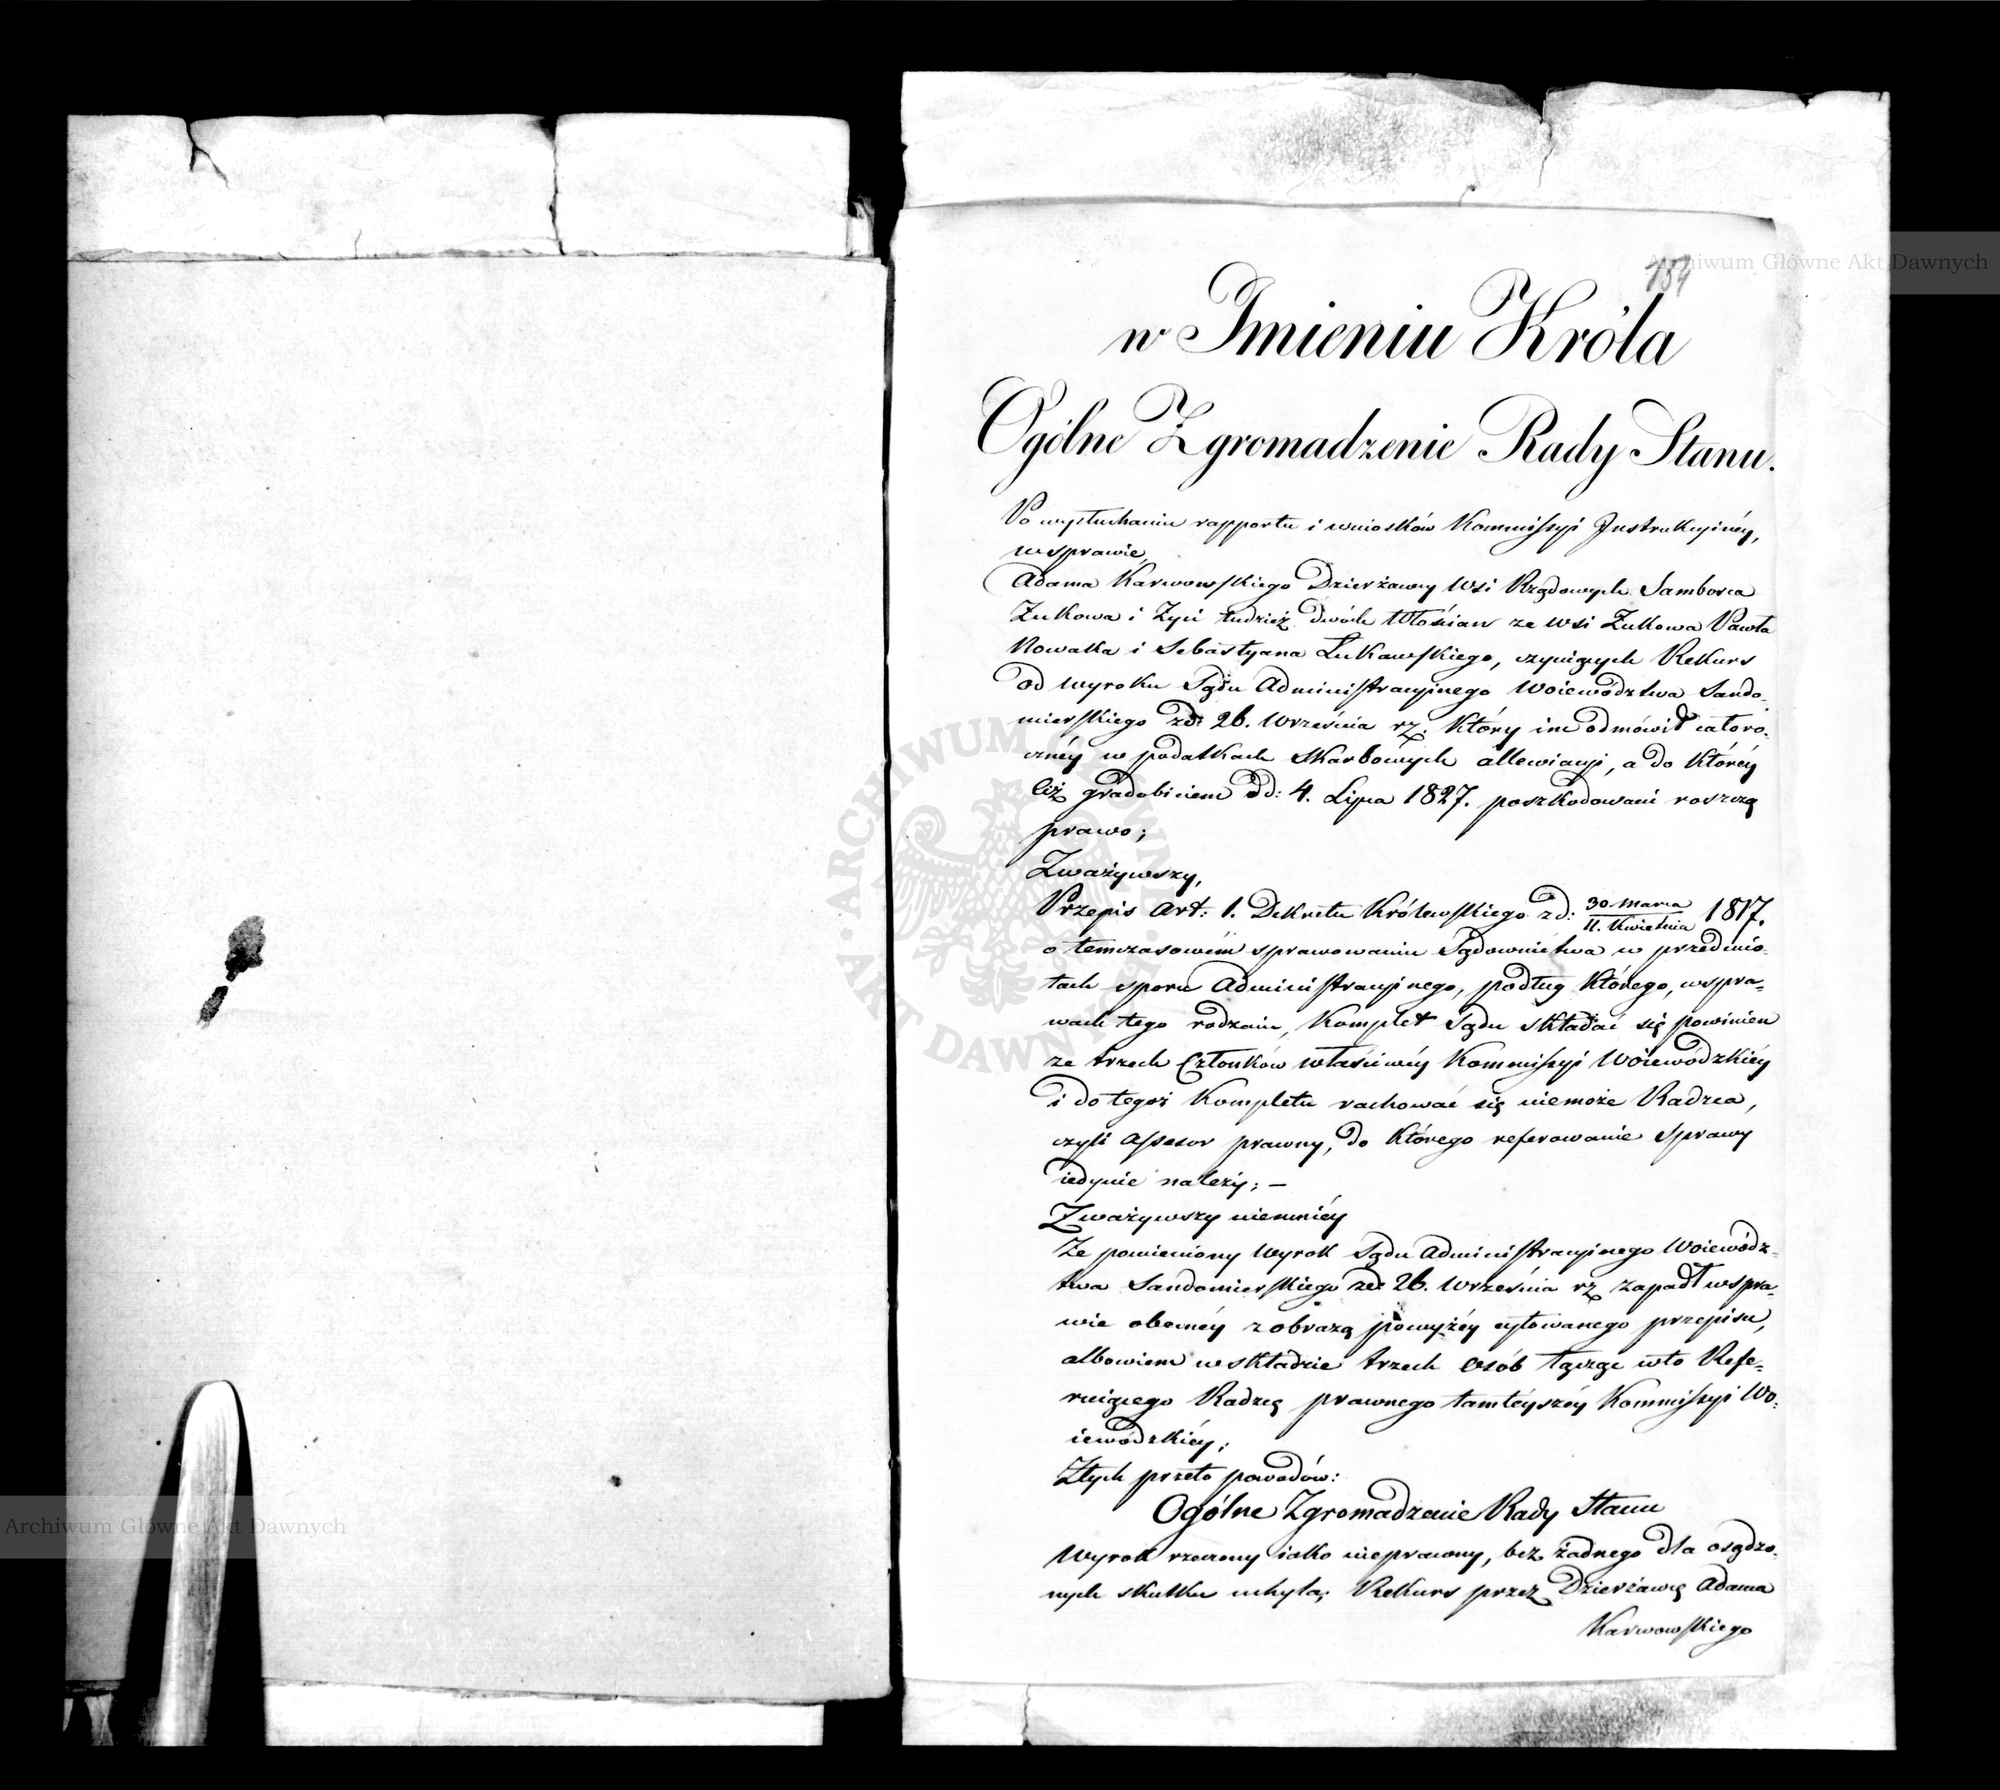 184
w Imieniu Króla
Ogólne Zgromadzenie Rady Stanu.
Po wysłuchaniu rapportu i wniosków Kommissyi Instrukcyinéy,
w sprawie
Adama Karwowskiego Dzierżawcy Wsi Rządowych Samborca
Zukowa i Zyci tudzież dwóch Włościan ze Wsi Zukowa Pawła
Nowaka i Sebastyana Łukawskiego, czyniących Rekurs
od wyroku Sądu Administracyinego Woiewództwa Sando-
mierskiego zd: 26. Września rz. który im odmówił całoro-
cznéy w podatkach skarbowych allewiacyi, a do któréy
ciż gradobiciem dd: 4. Lipca 1827. poszkodowani roszczą
prawo;
Zważywszy,
Przepis Art: 1. Dekretu Królewskiego zd: 30 Marca / 11. Kwietnia 1817.
o temczasowém sprawowaniu Sądownictwa w przedmio-
tach sporu Administracyinego, podług którego, w spra-
wach tego rodzaiu, Komplet Sądu składać się powinien
ze trzech Członków właściwéy Kommissyi Woiewódzkiéy
i do tegoż Kompletu rachować się niemoże Radzca,
czyli Assessor prawny, do którego referowanie Sprawy
iedynie należy; —
Zważywszy niemniéy
Że pomieniony Wyrok Sądu Administracyinego Woiewódz-
twa Sandomierskiego zd: 26. Września rz zapadł w spra-
wie obecnéy z obrazą powyżéy cytowanego przepisu,
albowiem w składzie trzech osób łącząc w to Refe-
ruiącego Radzcę prawnego tamtéyszéy Kommissyi Wo-
iewódzkiéy;
Z tych przeto powodów:
Ogólne Zgromadzenie Rady Stanu
Wyrok rzeczony iako nieprawny, bez żadnego dla osądzo-
nych skutku uchyla; Rekurs przez Dzierżawcę Adama
Karwowskiego
Archiwum Główne Akt Dawnych
Archiwum Główne Akt Dawnych